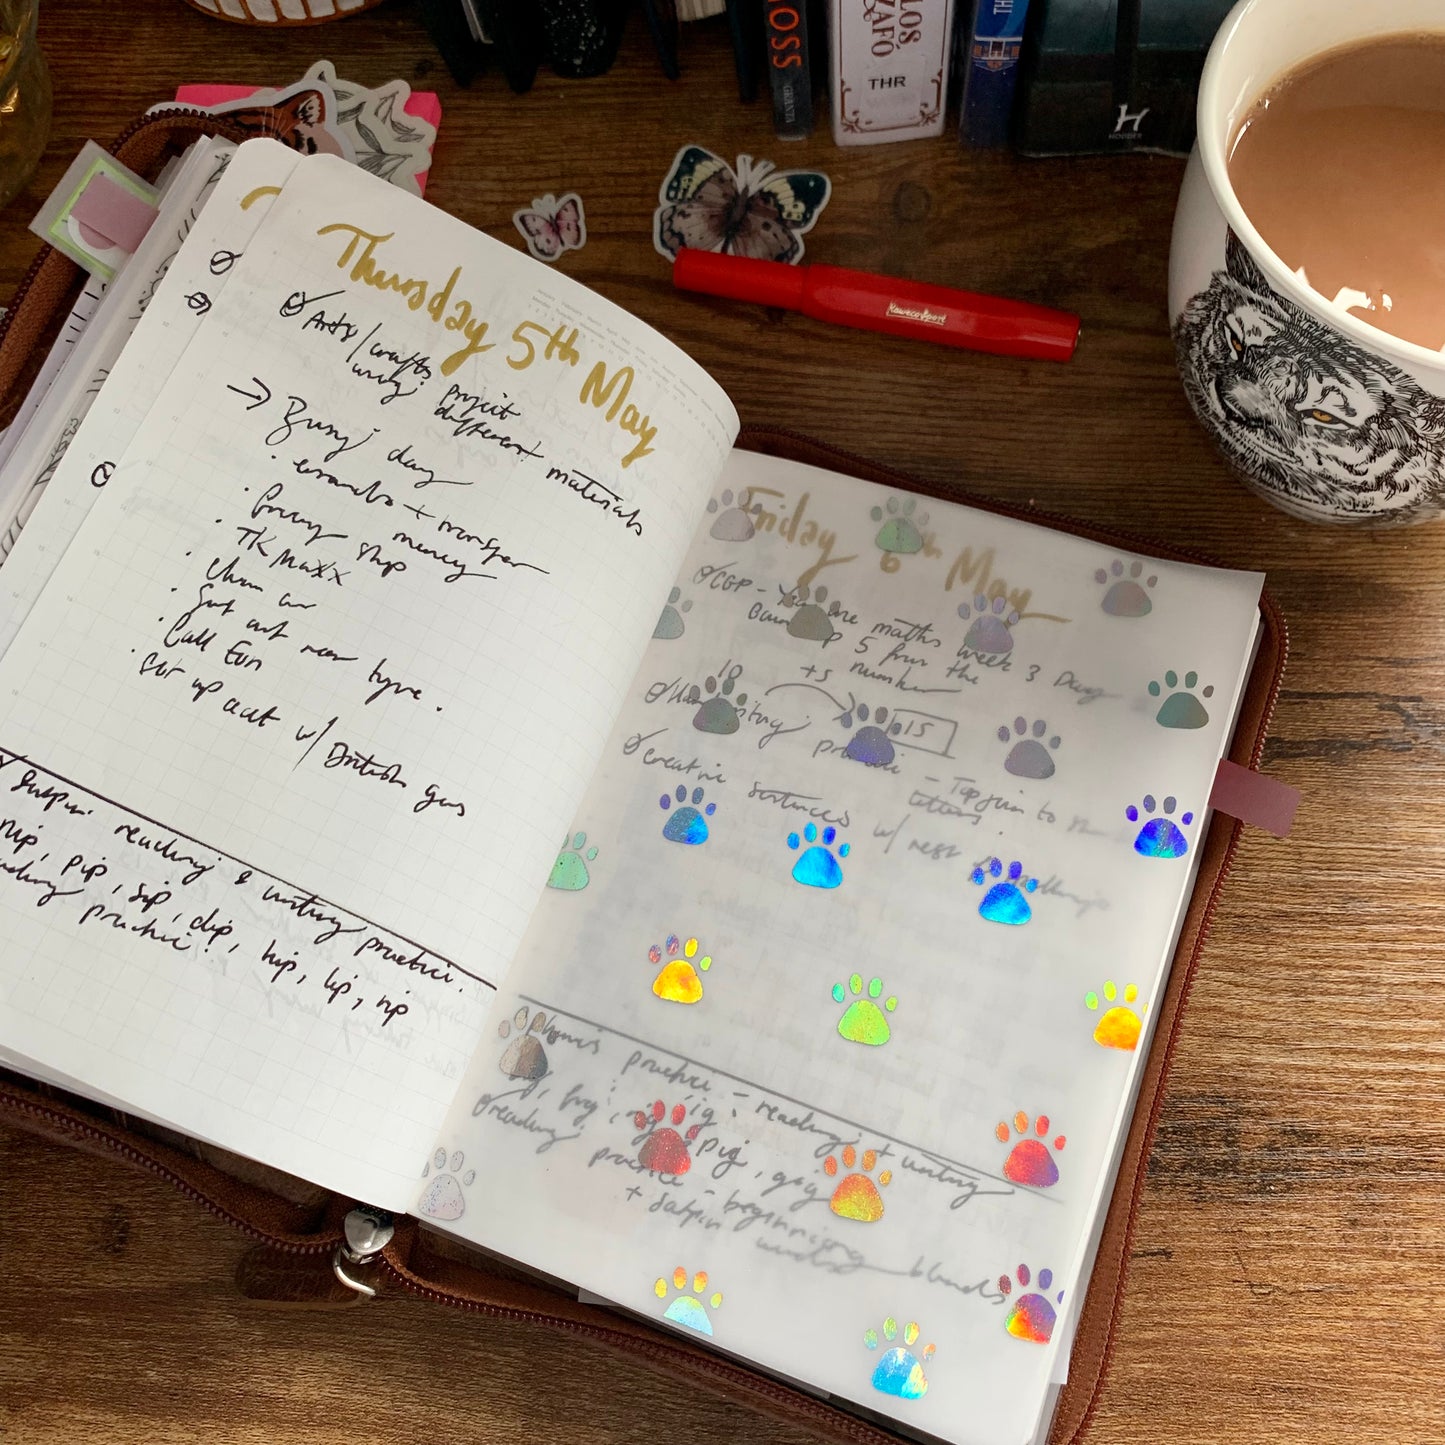 OSS
GRANTA
LOS
ZAFÓ
THR
TH
H
HODDER
Kaweco Sport
Thursday 5th May
Arts/crafts project
using different materials
→ Busy day
· + transfer money
· Grocery shop
· TK Maxx
· Clean car
· Sort out new tyre.
· Call Eon
· Set up acct w/ British gas
reading & writing practice.
nip, pip, sip, dip, hip, lip, rip
reading practice!
Friday 6th May
CGP - maths week 3 Day
5 from the
+5 number
10 15
Handwriting practice - Top
letters.
Creative sentences w/
Phonics practice - reading + writing
ig
pig, gig
reading practice - beginning blends
+ Satpin words